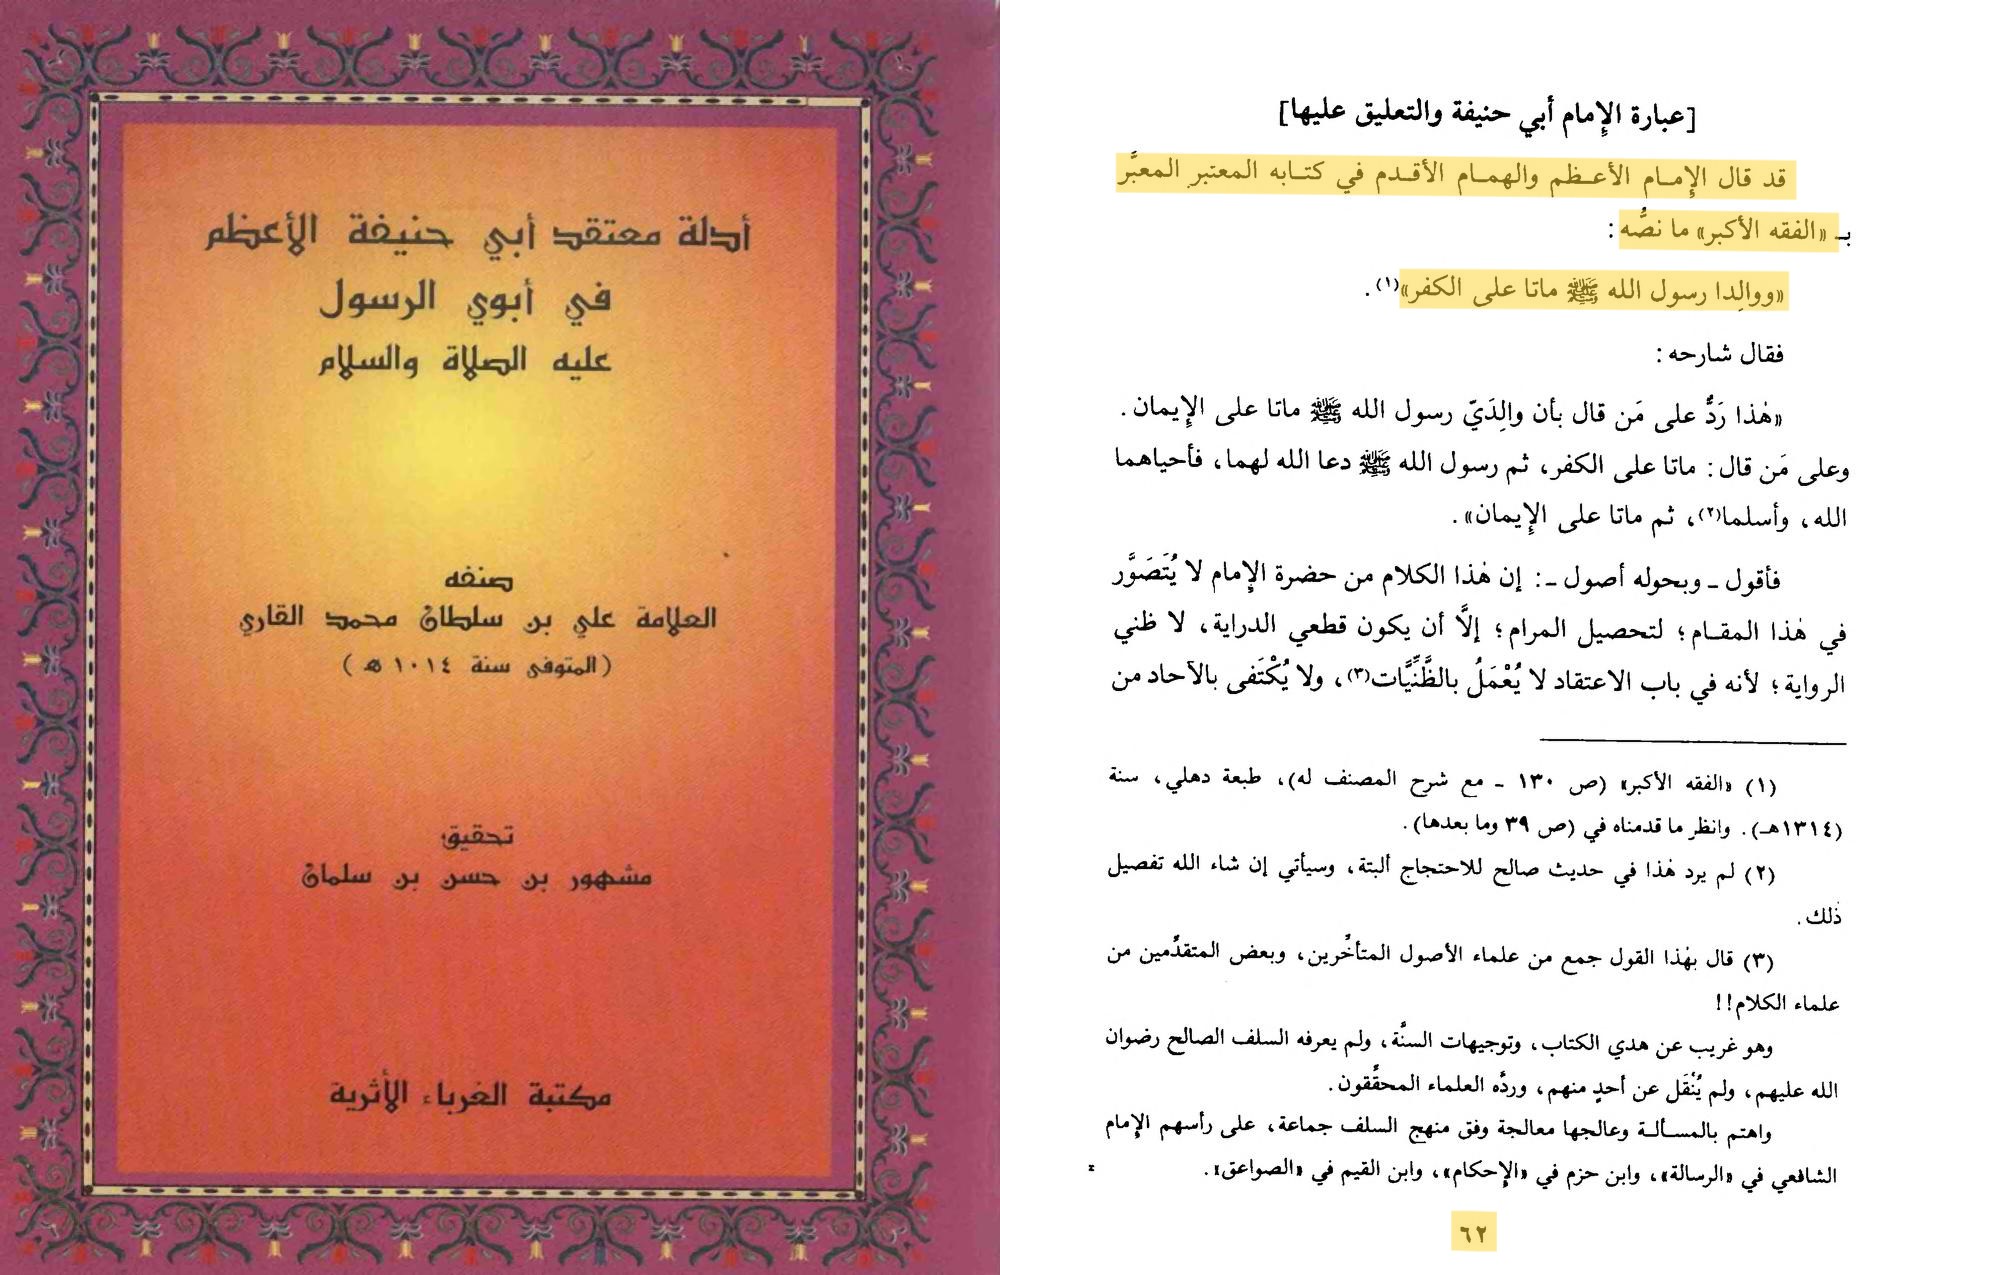 أدلة معتقد أبي حنيفة الأعظم
في أبوي الرسول
عليه الصلاة والسلام
صنفه
العلامة علي بن سلطان محمد القاري
(المتوفى سنة ١٠١٤ ه)
تحقيق
مشهور بن حسن بن سلمان
مكتبة الغرباء الأثرية
[عبارة الإمام أبي حنيفة والتعليق عليها]
قد قال الإمام الأعظم والهمام الأقدم في كتابه المعتبر المعبَّر
بـ «الفقه الأكبر» ما نصُّه:
«ووالِدا رسول الله ﷺ ماتا على الكفر»(١).
فقال شارحه:
«هٰذا رَدٌّ على مَن قال بأن والِدَيّ رسول الله ﷺ ماتا على الإيمان.
وعلى مَن قال: ماتا على الكفر، ثم رسول الله ﷺ دعا الله لهما، فأحياهما
الله، وأسلما(٢)، ثم ماتا على الإيمان».
فأقول ـ وبحوله أصول ـ: إن هٰذا الكلام من حضرة الإمام لا يُتَصَوَّر
في هٰذا المقام؛ لتحصيل المرام؛ إلَّا أن يكون قطعي الدراية، لا ظني
الرواية؛ لأنه في باب الاعتقاد لا يُعْمَلُ بالظَّنِّيَّات(٣)، ولا يُكْتَفى بالآحاد من
(١) «الفقه الأكبر» (ص ١٣٠ ـ مع شرح المصنف له)، طبعة دهلي، سنة
(١٣١٤هـ). وانظر ما قدمناه في (ص ٣٩ وما بعدها).
(٢) لم يرد هٰذا في حديث صالح للاحتجاج ألبتة، وسيأتي إن شاء الله تفصيل
ذٰلك.
(٣) قال بهٰذا القول جمع من علماء الأصول المتأخِّرين، وبعض المتقدِّمين من
علماء الكلام!!
وهو غريب عن هدي الكتاب، وتوجيهات السنَّة، ولم يعرفه السلف الصالح رضوان
الله عليهم، ولم يُنْقَل عن أحدٍ منهم، وردَّه العلماء المحقِّقون.
واهتم بالمسألة وعالجها معالجة وفق منهج السلف جماعة، على رأسهم الإمام
الشافعي في «الرسالة»، وابن حزم في «الإحكام»، وابن القيم في «الصواعق». =
٦٢